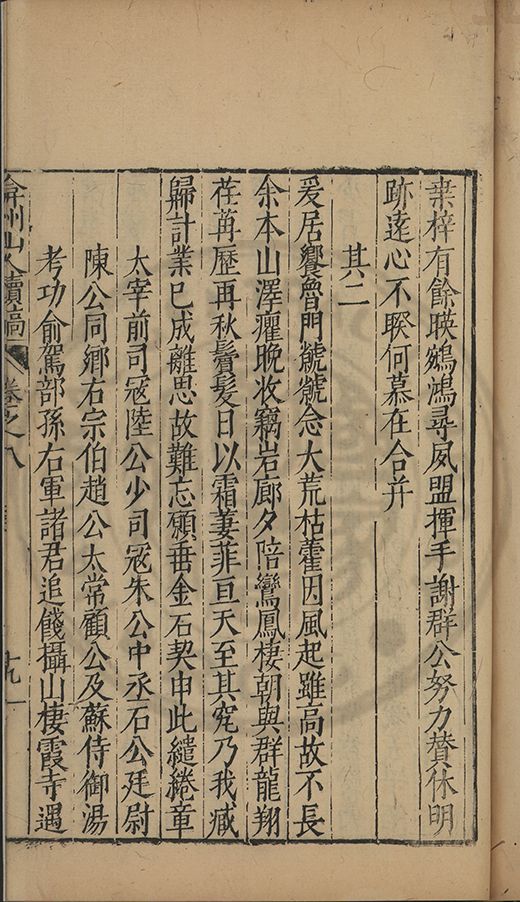 桒梓有餘暎鵷鴻尋夙盟揮手謝群公努力賛休明
跡遠心不睽何慕在合并
其二
爰居饗魯門虩虩念大荒枯藿因風起雖高故不長
余本山澤癯晚收竊岩廊夕陪鸞鳳棲朝與群龍翔
荏苒歷再秋鬢髮日以霜萋菲亘天至其究乃我臧
歸計業已成離思故難忘願垂金石契申此繾綣章
太宰前司寇陸公少司寇朱公中丞石公廷尉
陳公同鄉右宗伯趙公太常顧公及蘇侍御湯
考功俞駕部孫右軍諸君追餞攝山棲霞寺遇
弇州山人續稿
卷之八
十九